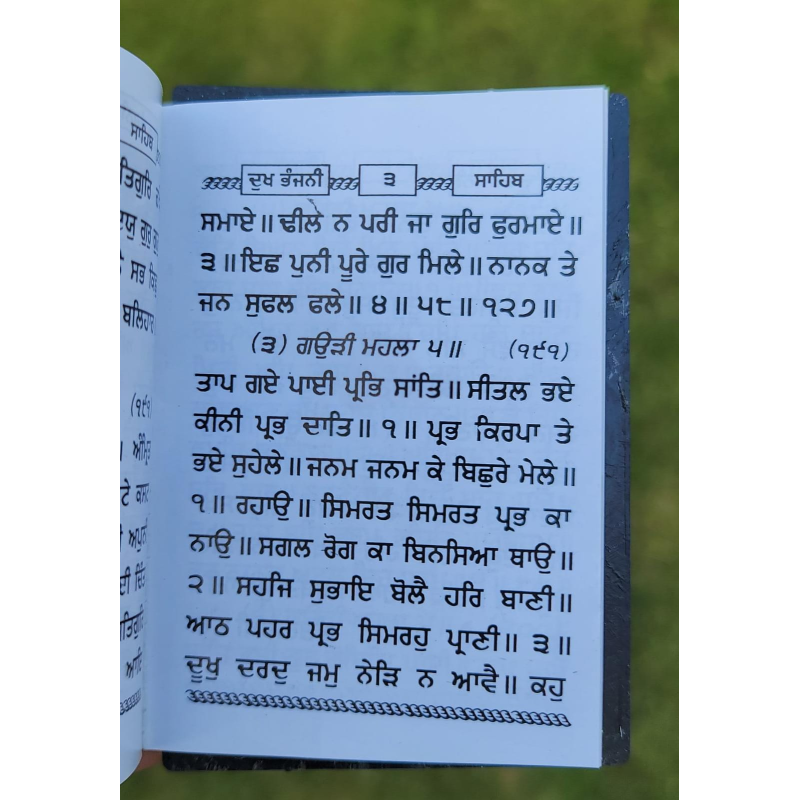 ਸਾਹਿਬ
ਬਲਿਹਾਰ
(੧੯੧)
ਦੁਖ ਭੰਜਨੀ ੩ ਸਾਹਿਬ
ਸਮਾਏ॥ ਢੀਲੇ ਨ ਪਰੀ ਜਾ ਗੁਰਿ ਫੁਰਮਾਏ॥
੩॥ ਇਛ ਪੁਨੀ ਪੂਰੇ ਗੁਰ ਮਿਲੇ॥ ਨਾਨਕ ਤੇ
ਜਨ ਸੁਫਲ ਫਲੇ॥ ੪॥ ੫੮॥ ੧੨੭॥
(੩) ਗਉੜੀ ਮਹਲਾ ੫॥ (੧੯੧)
ਤਾਪ ਗਏ ਪਾਈ ਪ੍ਰਭਿ ਸਾਂਤਿ॥ ਸੀਤਲ ਭਏ
ਕੀਨੀ ਪ੍ਰਭ ਦਾਤਿ॥ ੧॥ ਪ੍ਰਭ ਕਿਰਪਾ ਤੇ
ਭਏ ਸੁਹੇਲੇ॥ ਜਨਮ ਜਨਮ ਕੇ ਬਿਛੁਰੇ ਮੇਲੇ॥
੧॥ ਰਹਾਉ॥ ਸਿਮਰਤ ਸਿਮਰਤ ਪ੍ਰਭ ਕਾ
ਨਾਉ॥ ਸਗਲ ਰੋਗ ਕਾ ਬਿਨਸਿਆ ਥਾਉ॥
੨॥ ਸਹਜਿ ਸੁਭਾਇ ਬੋਲੈ ਹਰਿ ਬਾਣੀ॥
ਆਠ ਪਹਰ ਪ੍ਰਭ ਸਿਮਰਹੁ ਪ੍ਰਾਣੀ॥ ੩॥
ਦੂਖੁ ਦਰਦੁ ਜਮੁ ਨੇੜਿ ਨ ਆਵੈ॥ ਕਹੁ